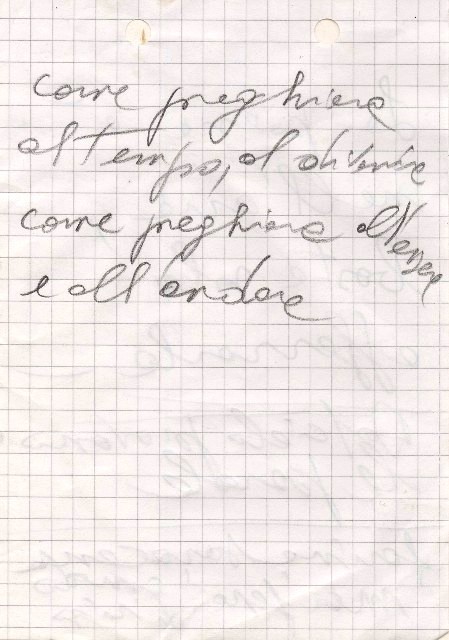 come preghiera
al tempo, al divenire
come preghiera all'essere
e all'andare